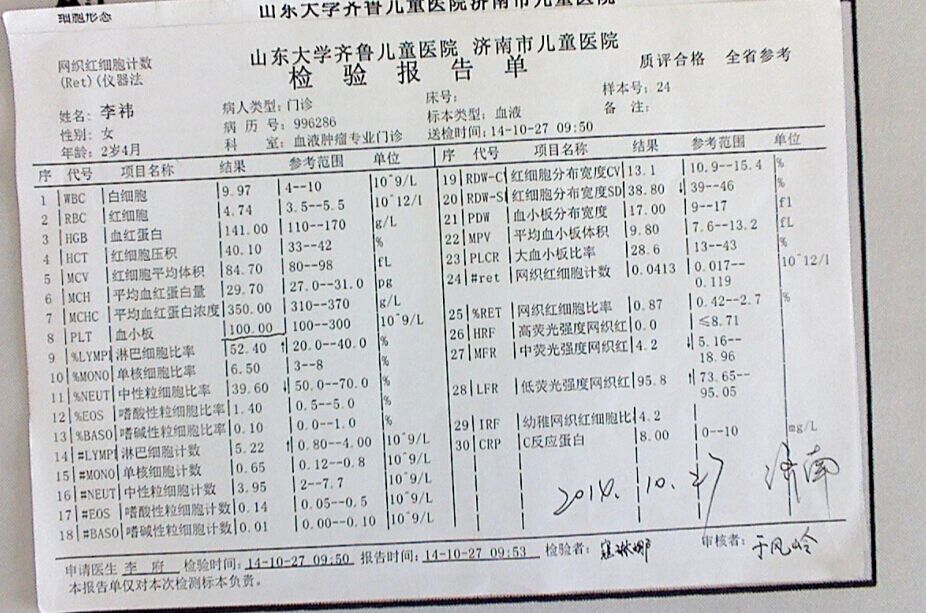 细胞形态
山东大学齐鲁儿童医院济南市儿童医院
网织红细胞计数
(Ret)(仪器法
山东大学齐鲁儿童医院 济南市儿童医院
检验报告单
质评合格 全省参考
姓名: 李祎 病人类型: 门诊 床号: 样本号: 24
性别: 女 病 历 号: 996286 标本类型: 血液 备 注:
年龄: 2岁4月 科 室: 血液肿瘤专业门诊 送检时间: 14-10-27 09:50
序 代号 项目名称 结果 参考范围 单位 序 代号 项目名称 结果 参考范围 单位
1 WBC 白细胞 9.97 4--10 10^9/L
2 RBC 红细胞 4.74 3.5--5.5 10^12/l
3 HGB 血红蛋白 141.00 110--170 g/L
4 HCT 红细胞压积 40.10 33--42 %
5 MCV 红细胞平均体积 84.70 80--98 fL
6 MCH 平均血红蛋白量 29.70 27.0--31.0 pg
7 MCHC 平均血红蛋白浓度 350.00 310--370 g/L
8 PLT 血小板 100.00 100--300 10^9/L
9 %LYMP 淋巴细胞比率 52.40 ↑ 20.0--40.0 %
10 %MONO 单核细胞比率 6.50 3--8 %
11 %NEUT 中性粒细胞比率 39.60 ↓ 50.0--70.0 %
12 %EOS 嗜酸性粒细胞比率 1.40 0.5--5.0 %
13 %BASO 嗜碱性粒细胞比率 0.10 0.0--1.0 %
14 #LYMP 淋巴细胞计数 5.22 ↑ 0.80--4.00 10^9/L
15 #MONO 单核细胞计数 0.65 0.12--0.8 10^9/L
16 #NEUT 中性粒细胞计数 3.95 2--7.7 10^9/L
17 #EOS 嗜酸性粒细胞计数 0.14 0.05--0.5 10^9/L
18 #BASO 嗜碱性粒细胞计数 0.01 0.00--0.10 10^9/L
19 RDW-C 红细胞分布宽度CV 13.1 10.9--15.4 %
20 RDW-S 红细胞分布宽度SD 38.80 ↓ 39--46 %
21 PDW 血小板分布宽度 17.00 9--17 fl
22 MPV 平均血小板体积 9.80 7.6--13.2 fL
23 PLCR 大血小板比率 28.6 13--43 %
24 #ret 网织红细胞计数 0.0413 0.017-- 10^12/l
0.119
25 %RET 网织红细胞比率 0.87 0.42--2.7 %
26 HRF 高荧光强度网织红 0.0 ≤8.71
27 MFR 中荧光强度网织红 4.2 ↓ 5.16--
18.96
28 LFR 低荧光强度网织红 95.8 ↑ 73.65--
95.05
29 IRF 幼稚网织红细胞比 4.2
30 CRP C反应蛋白 8.00 0--10 mg/L
2014.10.27 济南
申请医生 李 府 检验时间: 14-10-27 09:50 报告时间: 14-10-27 09:53 检验者: 审核者: 于风岭
本报告单仅对本次检测标本负责。